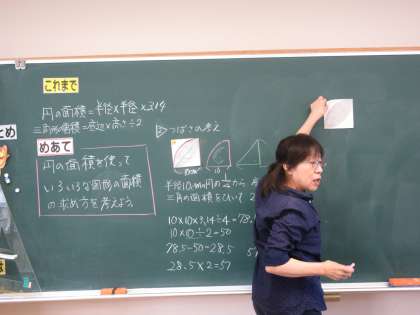 これまで
円の面積＝半径×半径×3.14
三角形の面積＝底辺×高さ÷2
とめ
めあて
円の面積を使って
いろいろな図形の面積
の求め方を考えよう。
つばさの考え
10cm
10
半径10cmの円の から
三角の面積をひいて 2
10×10×3.14÷4=78.
10×10÷2=50
78.5-50=28.5
28.5×2=57